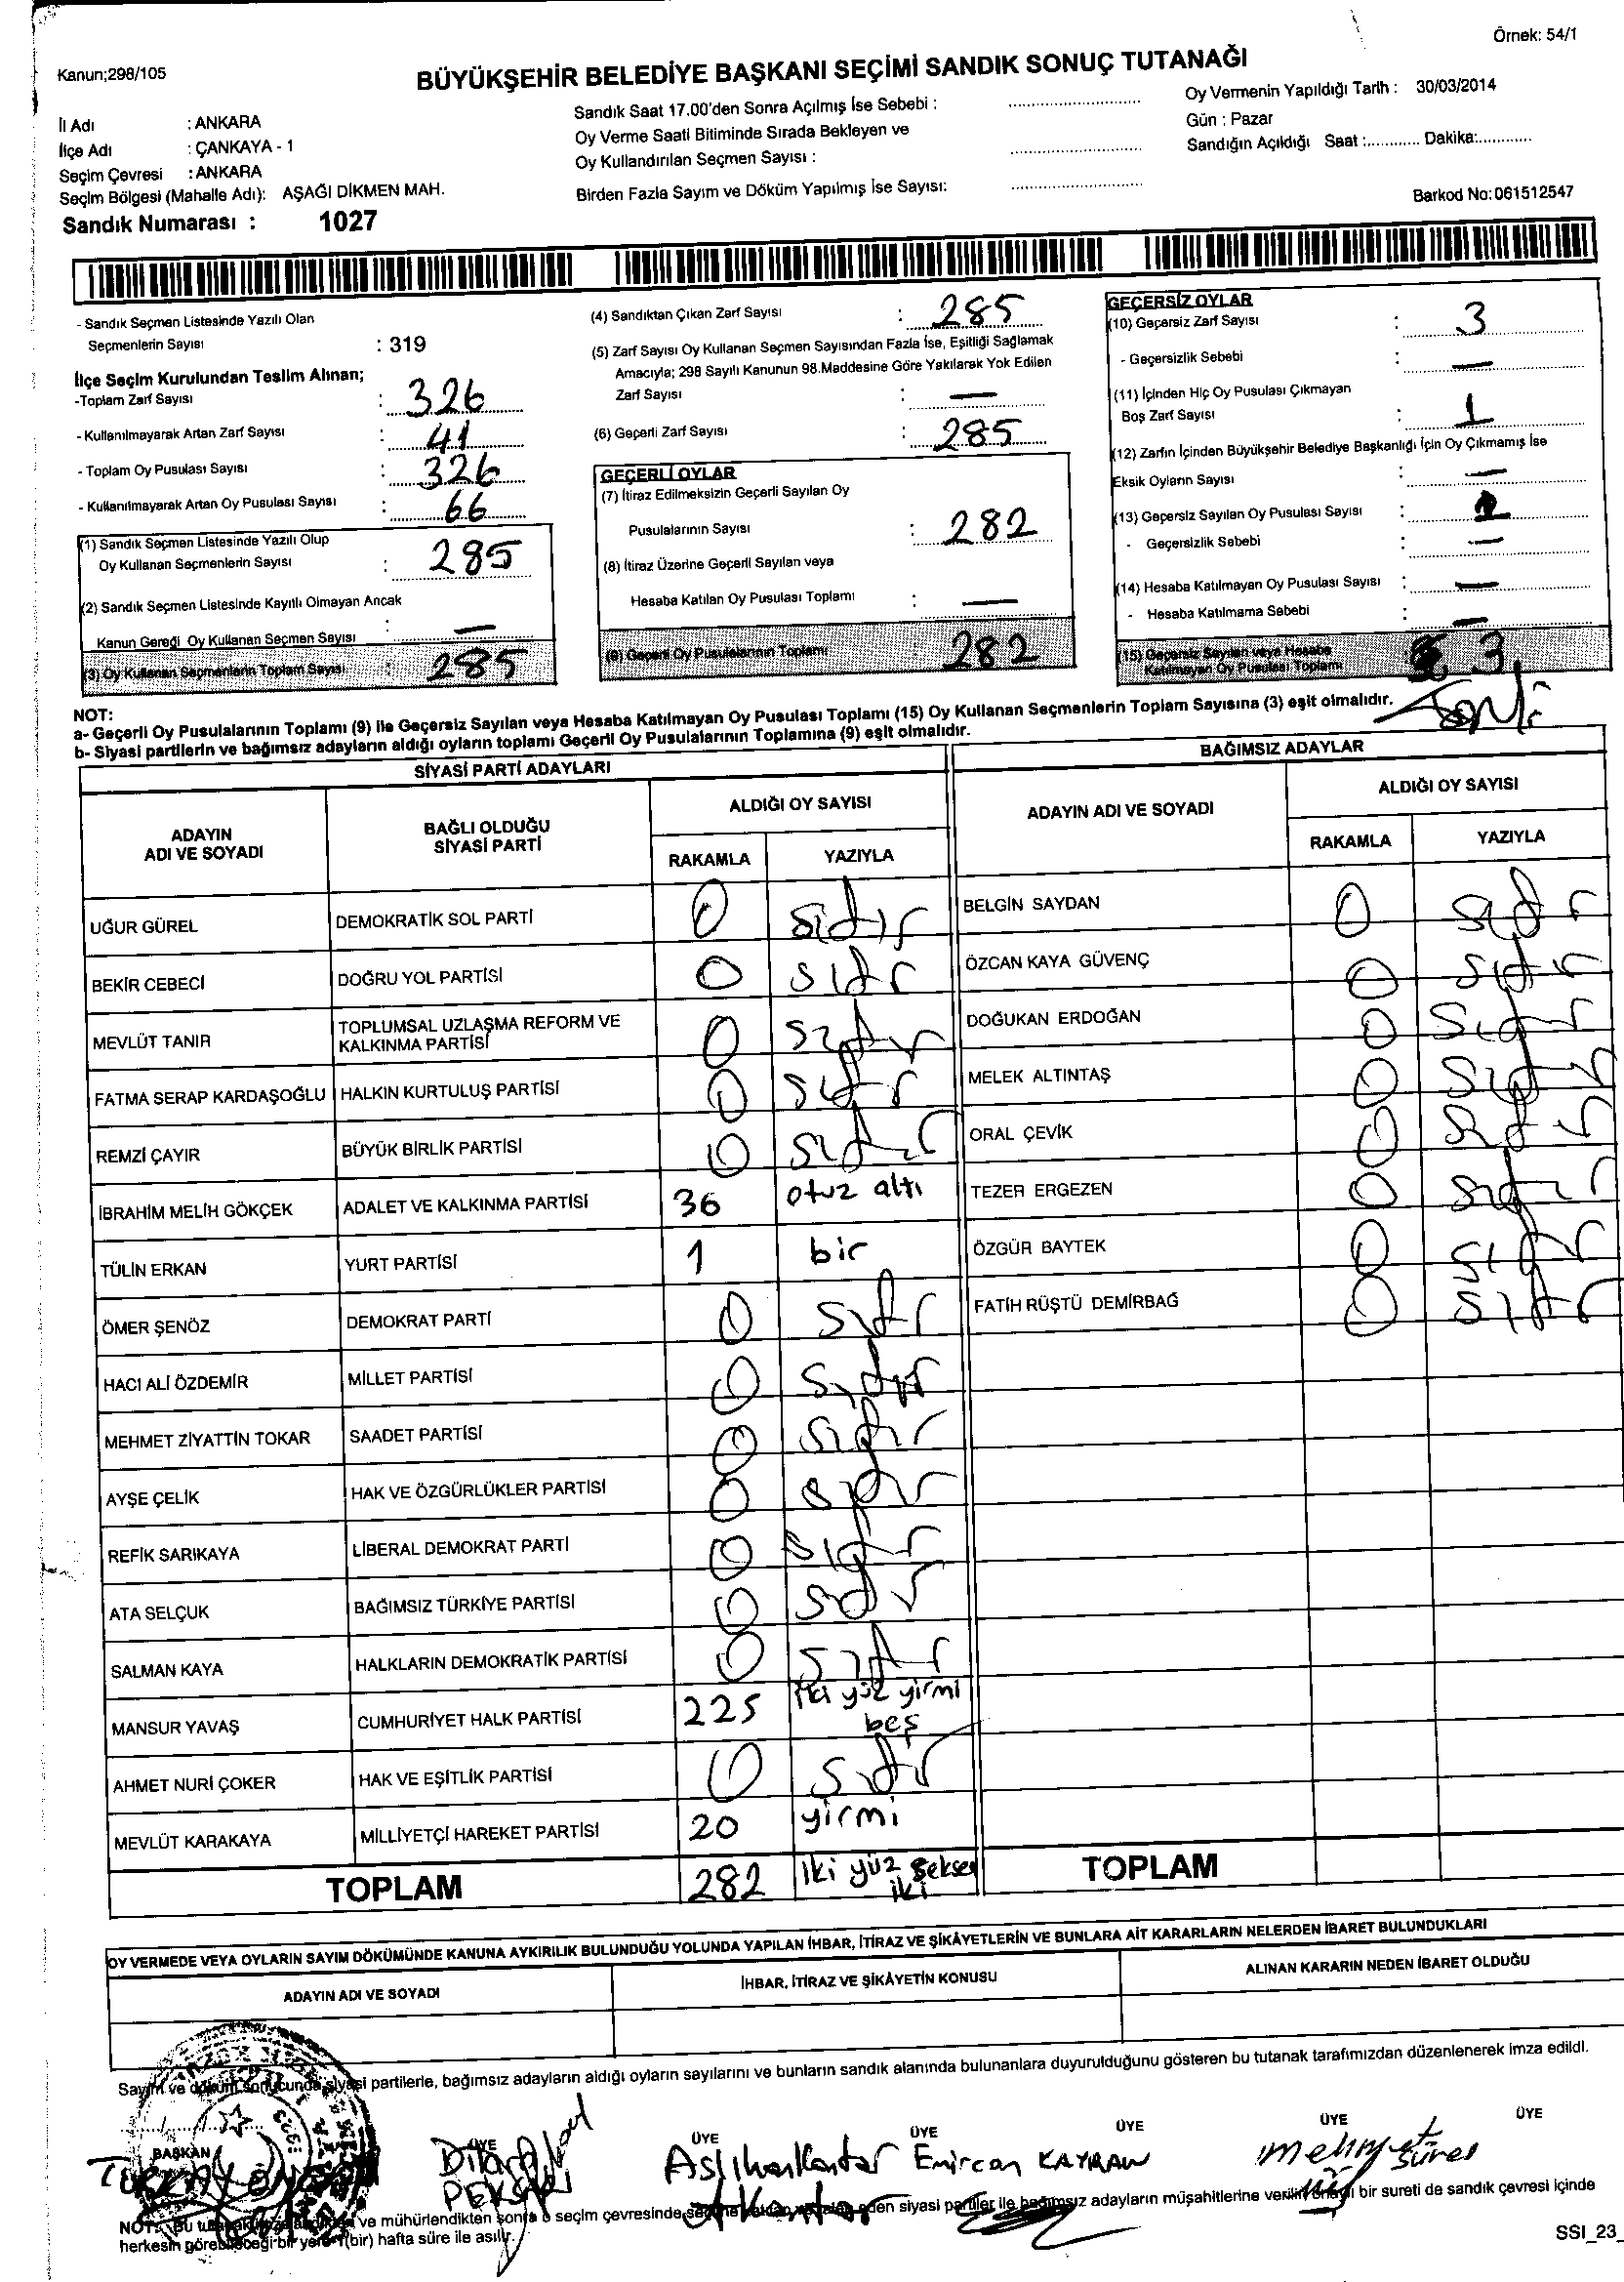 Örnek: 54/1
Kanun;298/105
BÜYÜKŞEHİR BELEDİYE BAŞKANI SEÇİMİ SANDIK SONUÇ TUTANAĞI
İl Adı : ANKARA
İlçe Adı : ÇANKAYA - 1
Seçim Çevresi : ANKARA
Seçim Bölgesi (Mahalle Adı): AŞAĞI DİKMEN MAH.
Sandık Numarası : 1027
Sandık Saat 17.00'den Sonra Açılmış İse Sebebi :
Oy Verme Saati Bitiminde Sırada Bekleyen ve
Oy Kullandırılan Seçmen Sayısı :
Birden Fazla Sayım ve Döküm Yapılmış İse Sayısı:
Oy Vermenin Yapıldığı Tarih : 30/03/2014
Gün : Pazar
Sandığın Açıldığı Saat :............ Dakika:............
Barkod No:061512547
- Sandık Seçmen Listesinde Yazılı Olan
Seçmenlerin Sayısı : 319
İlçe Seçim Kurulundan Teslim Alınan;
-Toplam Zarf Sayısı : 326
- Kullanılmayarak Artan Zarf Sayısı : 41
- Toplam Oy Pusulası Sayısı : 326
- Kullanılmayarak Artan Oy Pusulası Sayısı : 66
(1) Sandık Seçmen Listesinde Yazılı Olup
Oy Kullanan Seçmenlerin Sayısı : 285
(2) Sandık Seçmen Listesinde Kayıtlı Olmayan Ancak
Kanun Gereği Oy Kullanan Seçmen Sayısı : —
(3) Oy Kullanan Seçmenlerin Toplam Sayısı : 285
(4) Sandıktan Çıkan Zarf Sayısı : 285
(5) Zarf Sayısı Oy Kullanan Seçmen Sayısından Fazla İse, Eşitliği Sağlamak
Amacıyla; 298 Sayılı Kanunun 98.Maddesine Göre Yakılarak Yok Edilen
Zarf Sayısı : —
(6) Geçerli Zarf Sayısı : 285
GEÇERLİ OYLAR
(7) İtiraz Edilmeksizin Geçerli Sayılan Oy
Pusulalarının Sayısı : 282
(8) İtiraz Üzerine Geçerli Sayılan veya
Hesaba Katılan Oy Pusulası Toplamı : —
(9) Geçerli Oy Pusulalarının Toplamı : 282
GEÇERSİZ OYLAR
(10) Geçersiz Zarf Sayısı : 3
- Geçersizlik Sebebi : —
(11) İçinden Hiç Oy Pusulası Çıkmayan
Boş Zarf Sayısı : 1
(12) Zarfın İçinden Büyükşehir Belediye Başkanlığı İçin Oy Çıkmamış İse
Eksik Oyların Sayısı : —
(13) Geçersiz Sayılan Oy Pusulası Sayısı :
- Geçersizlik Sebebi : —
(14) Hesaba Katılmayan Oy Pusulası Sayısı : —
- Hesaba Katılmama Sebebi : —
(15) Geçersiz Sayılan veya Hesaba
Katılmayan Oy Pusulası Toplamı 3
NOT:
a- Geçerli Oy Pusulalarının Toplamı (9) ile Geçersiz Sayılan veya Hesaba Katılmayan Oy Pusulası Toplamı (15) Oy Kullanan Seçmenlerin Toplam Sayısına (3) eşit olmalıdır.
b- Siyasi partilerin ve bağımsız adayların aldığı oyların toplamı Geçerli Oy Pusulalarının Toplamına (9) eşit olmalıdır.
SİYASİ PARTİ ADAYLARI
ADAYIN ADI VE SOYADI BAĞLI OLDUĞU SİYASİ PARTİ ALDIĞI OY SAYISI
RAKAMLA YAZIYLA
UĞUR GÜREL DEMOKRATİK SOL PARTİ 0 sıdır
BEKİR CEBECİ DOĞRU YOL PARTİSİ 0 sıfır
MEVLÜT TANIR TOPLUMSAL UZLAŞMA REFORM VE KALKINMA PARTİSİ 0 sıfır
FATMA SERAP KARDAŞOĞLU HALKIN KURTULUŞ PARTİSİ 0 sıfır
REMZİ ÇAYIR BÜYÜK BİRLİK PARTİSİ 0 sıfır
İBRAHİM MELİH GÖKÇEK ADALET VE KALKINMA PARTİSİ 36 otuz altı
TÜLİN ERKAN YURT PARTİSİ 1 bir
ÖMER ŞENÖZ DEMOKRAT PARTİ 0 sıfır
HACI ALİ ÖZDEMİR MİLLET PARTİSİ 0 sıfır
MEHMET ZİYATTİN TOKAR SAADET PARTİSİ 0 sıfır
AYŞE ÇELİK HAK VE ÖZGÜRLÜKLER PARTİSİ 0 sıfır
REFİK SARIKAYA LİBERAL DEMOKRAT PARTİ 0 sıfır
ATA SELÇUK BAĞIMSIZ TÜRKİYE PARTİSİ 0 sıfır
SALMAN KAYA HALKLARIN DEMOKRATİK PARTİSİ 0 sıfır
MANSUR YAVAŞ CUMHURİYET HALK PARTİSİ 225 iki yüz yirmi beş
AHMET NURİ ÇOKER HAK VE EŞİTLİK PARTİSİ 0 sıfır
MEVLÜT KARAKAYA MİLLİYETÇİ HAREKET PARTİSİ 20 yirmi
TOPLAM 282 iki yüz seksen iki
BAĞIMSIZ ADAYLAR
ADAYIN ADI VE SOYADI ALDIĞI OY SAYISI
RAKAMLA YAZIYLA
BELGİN SAYDAN 0 sıfır
ÖZCAN KAYA GÜVENÇ 0 sıfır
DOĞUKAN ERDOĞAN 0 sıfır
MELEK ALTINTAŞ 0 sıfır
ORAL ÇEVİK 0 sıfır
TEZER ERGEZEN 0 sıfır
ÖZGÜR BAYTEK 0 sıfır
FATİH RÜŞTÜ DEMİRBAĞ 0 sıfır
TOPLAM
OY VERMEDE VEYA OYLARIN SAYIM DÖKÜMÜNDE KANUNA AYKIRILIK BULUNDUĞU YOLUNDA YAPILAN İHBAR, İTİRAZ VE ŞİKÂYETLERİN VE BUNLARA AİT KARARLARIN NELERDEN İBARET BULUNDUKLARI
ADAYIN ADI VE SOYADI İHBAR, İTİRAZ VE ŞİKÂYETİN KONUSU ALINAN KARARIN NEDEN İBARET OLDUĞU
Sayım ve döküm sonucunda siyasi partilerle, bağımsız adayların aldığı oyların sayılarını ve bunların sandık alanında bulunanlara duyurulduğunu gösteren bu tutanak tarafımızdan düzenlenerek imza edildi.
BAŞKAN ÜYE ÜYE ÜYE ÜYE ÜYE ÜYE
Aslıhan Kantar Emircan KAYRAN Mehmet
NOT: Bu ve mühürlendikten sonra o seçim çevresinde eden siyasi partiler ile bağımsız adayların müşahitlerine bir sureti de sandık çevresi içinde
herkesin görebileceği bir yere 1(bir) hafta süre ile asılır.
SSI_23_